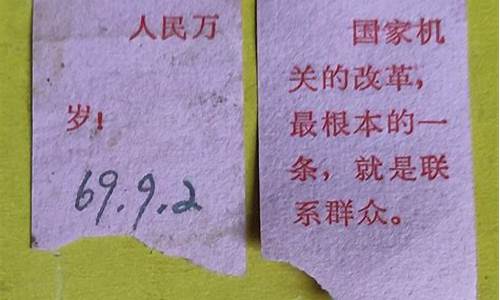 人民万
岁！
69.9.2
国家机
关的改革，
最根本的一
条，就是联
系群众。